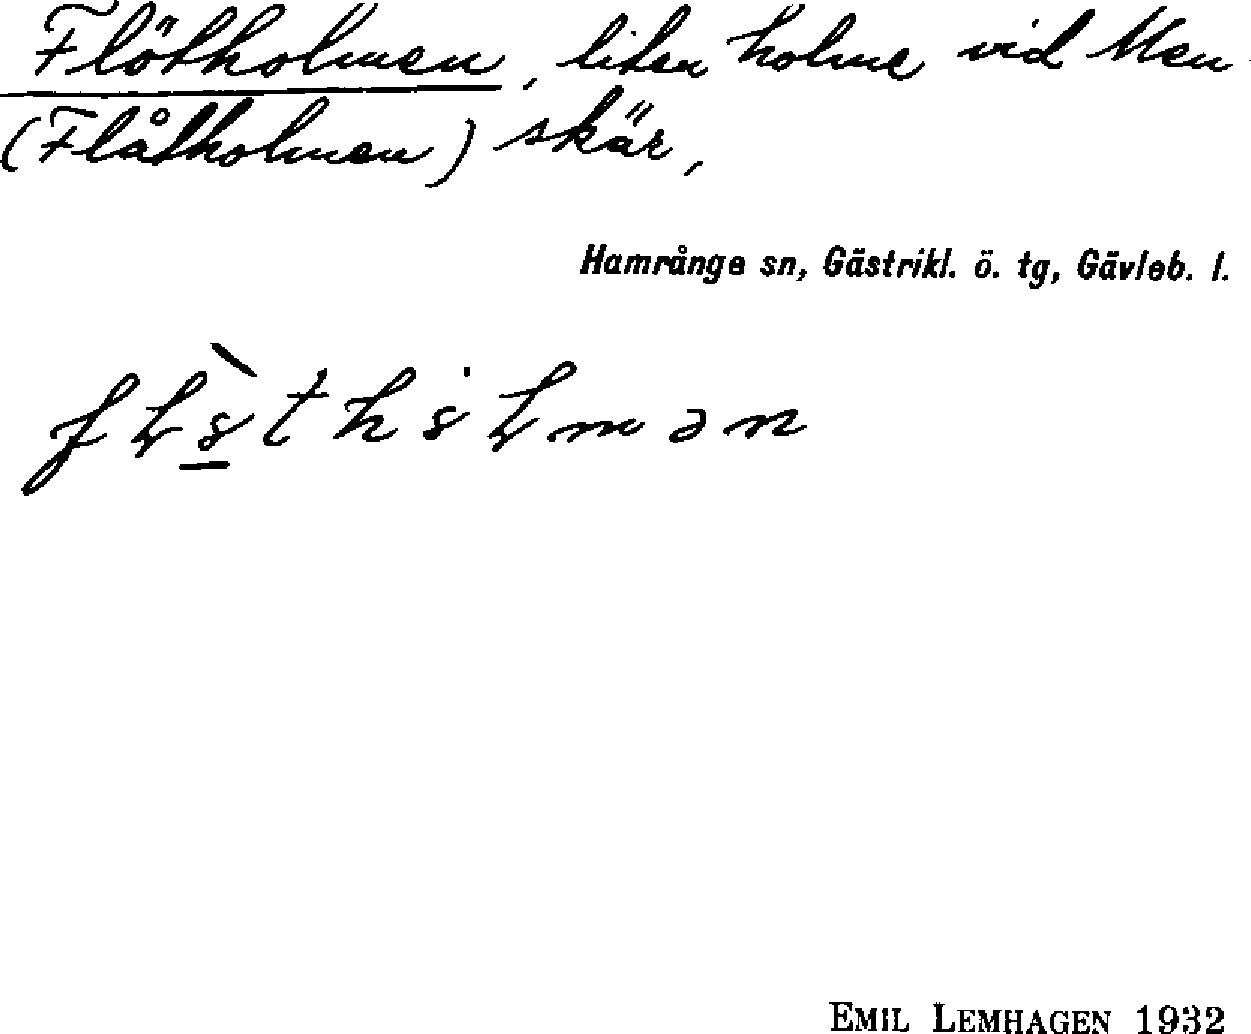 Flötholmen, liten holme vid Men
(Flåtholmen) skär,
Hamrånge sn, Gästrikl. ö. tg, Gävleb. l.
EMIL LEMHAGEN 1932